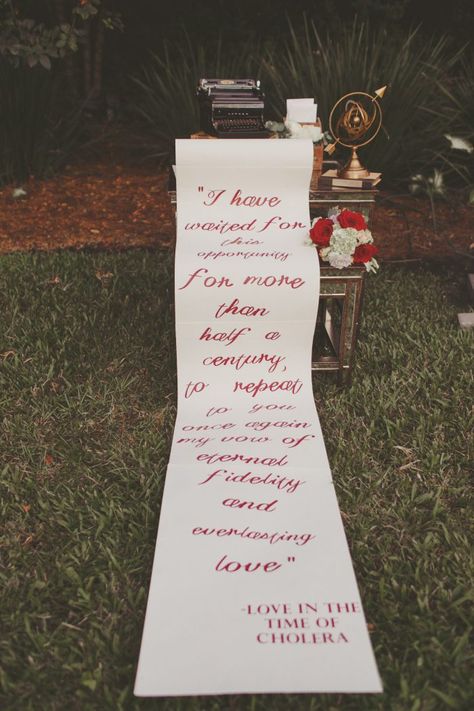 "I have
waited for
this
opportunity
for more
than
half a
century,
to repeat
to you
once again
my vow of
eternal
fidelity
and
everlasting
love"
-LOVE IN THE
TIME OF
CHOLERA